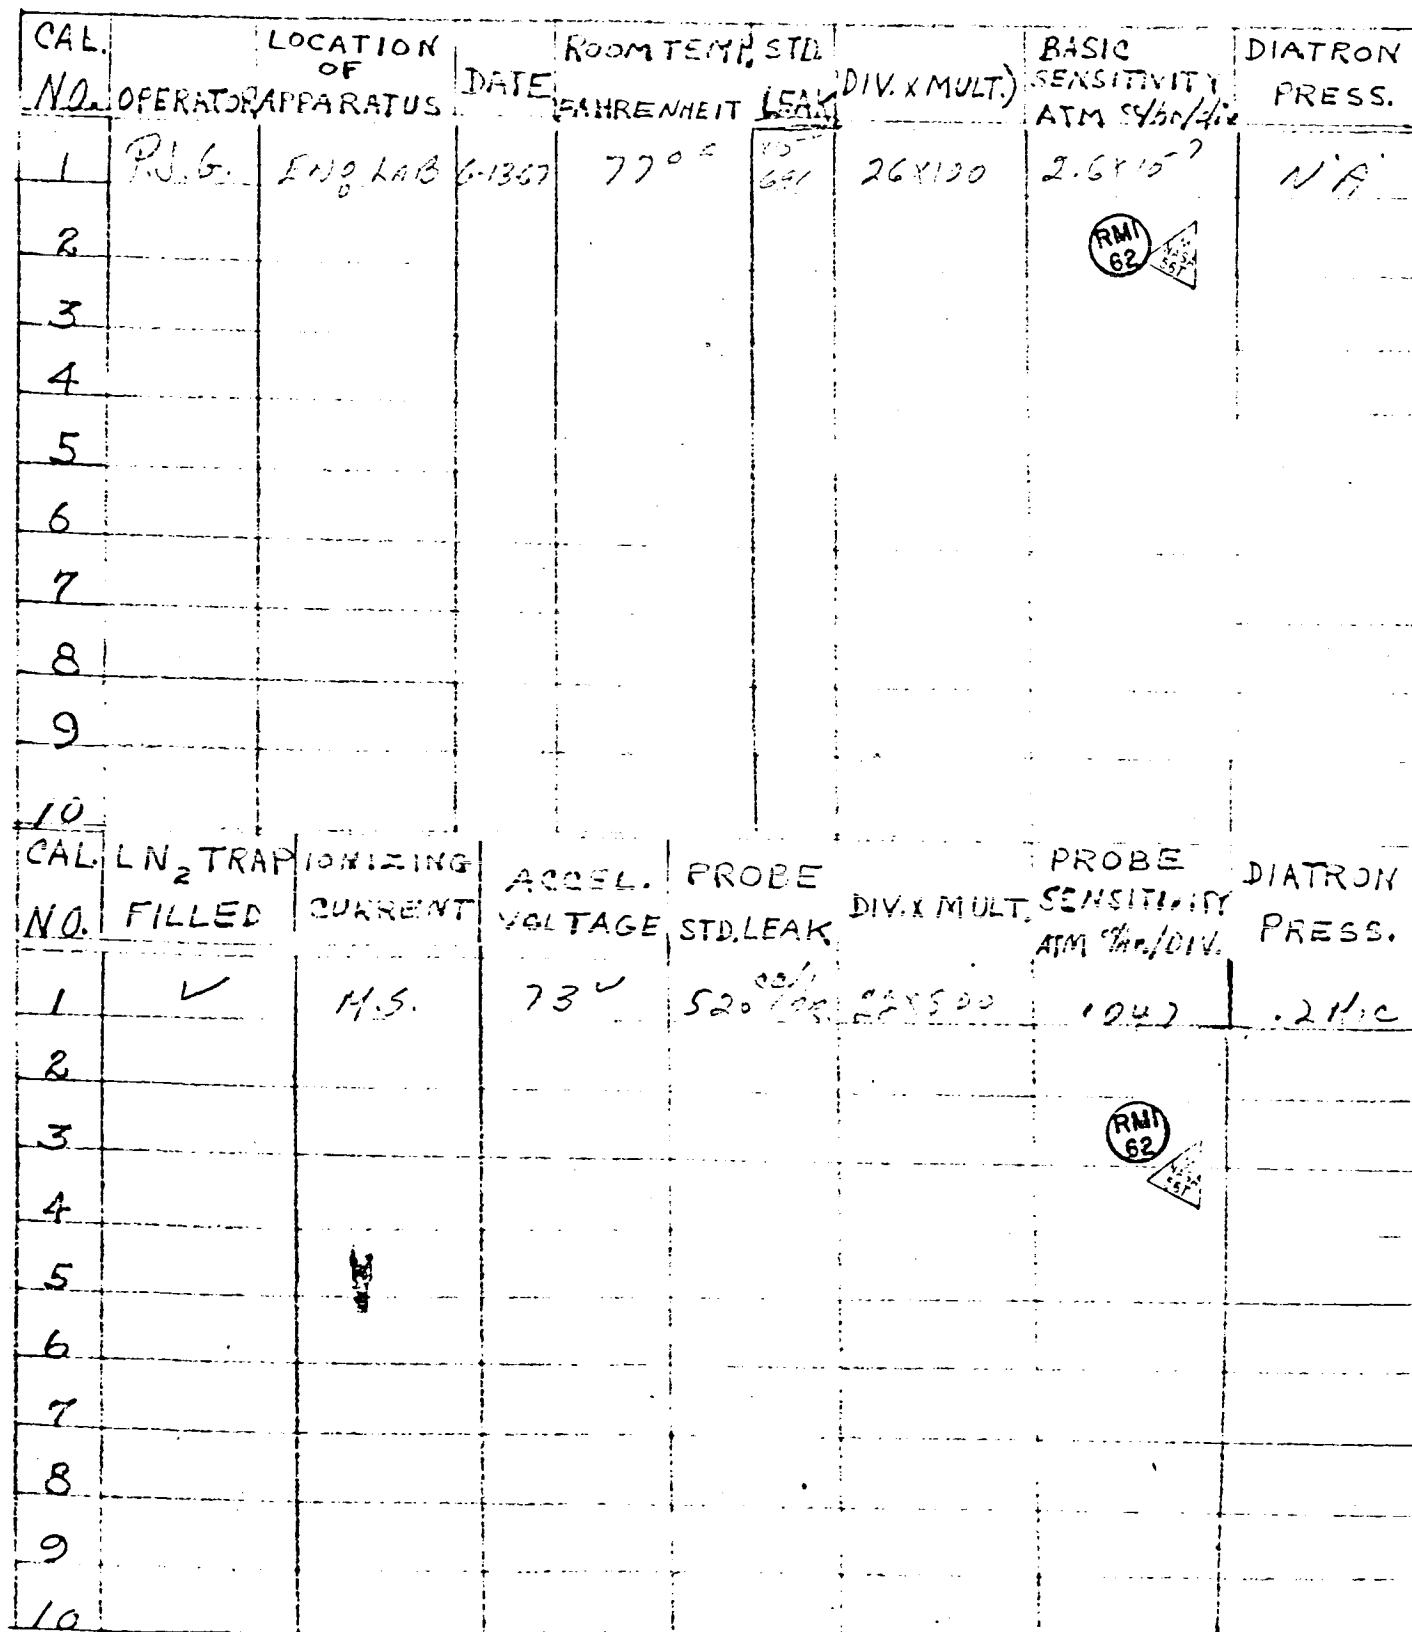 CAL. NO. OPERATOR LOCATION OF APPARATUS DATE ROOM TEMP. FAHRENHEIT STD. LEAK DIV. X MULT.) BASIC SENSITIVITY ATM cc/hr/div DIATRON PRESS.
1 P.J.G. ENG LAB 6-13-67 77° 26X100 2.6X10⁻⁷ N.A.
2
RMI 62
3
4
5
6
7
8
9
10
CAL. NO. LN₂ TRAP FILLED IONIZING CURRENT ACCEL. VOLTAGE PROBE STD. LEAK DIV. X MULT. PROBE SENSITIVITY ATM cc/hr./DIV. DIATRON PRESS.
1 ✓ M.S. 73 V 520 22X500 .047
2
3
RMI 62
4
5
6
7
8
9
10